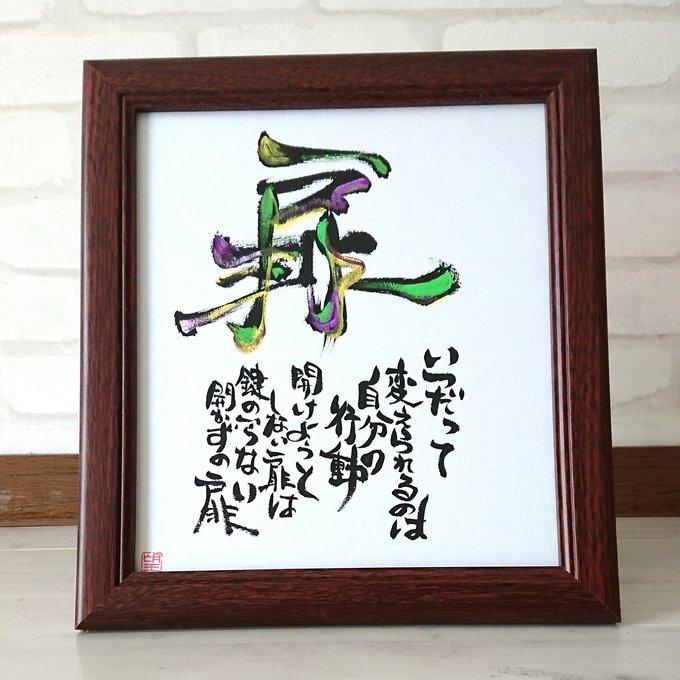 扉
いつだって
変えられるのは
自分の
行動
開けようと
しない扉は
鍵のいらない
開かずの扉
望